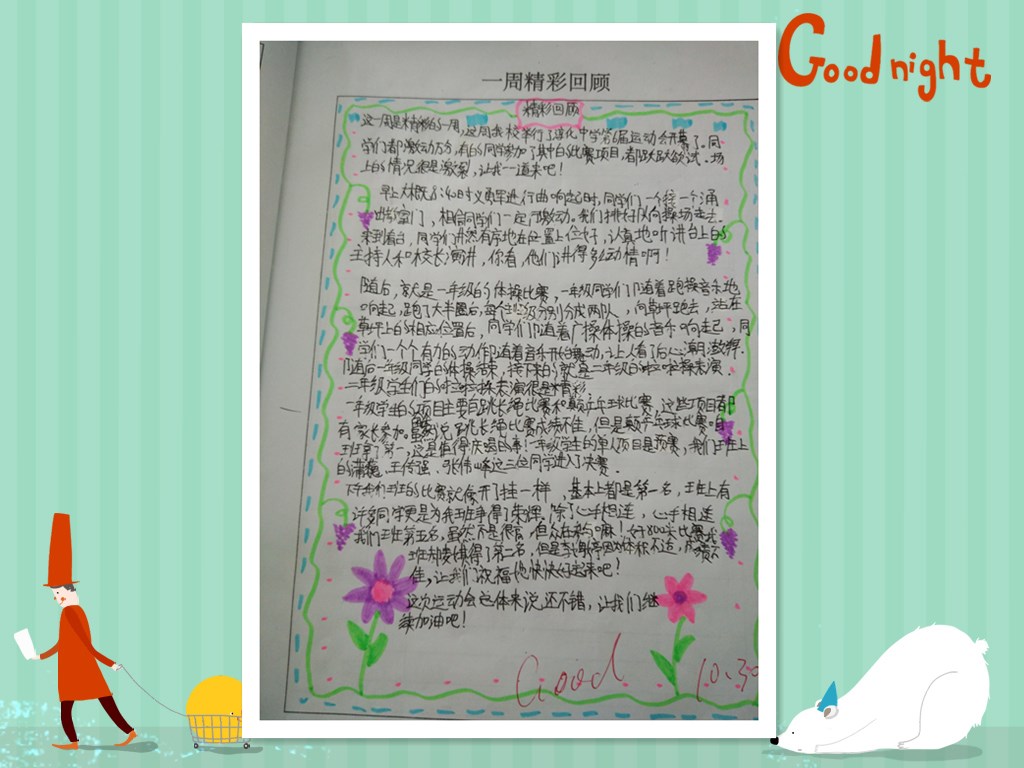 Good night
一周精彩回顾
精彩回顾
这一周是精彩的一周，这周我校举行了淳化中学第6届运动会开幕了。同
学们都激动万分，有的同学参加了其中的比赛项目，都跃跃欲试。场
上的情况忽是激烈，让我一道来吧！
早上大概8:40时义勇军进行曲响起时，同学们一个接一个涌
出教室门，相信同学们一定很激动。我们排好队向操场走去。
来到看台，同学们井然有序地在位置上位好，认真地听讲台上的
主持人和校长演讲，你看，他们讲得多么动情啊！
随后，就是一年级的体操比赛，一年级同学们随着跑操音乐地
响起，跑了大半圈后，每个班级分别分成两队，向草坪跑去，站在
草坪上的相应位置后，同学们随着广操体操的音乐响走起，同
学们一个个有力的动作随着音乐开始舞动，让人看了后心潮澎湃。
随后一年级同学的体操结束，接下来的就是二年级的啦啦操表演。
二年级学生们的啦啦操表演很是精彩
一年级学生的项目主要自跳长绳比赛和颠乒乓球比赛，这些项目都
有家长参加。虽说了跳长绳比赛成绩不佳，但是颠乒乓球比赛咱
班拿了第一，这是值得庆唱的事！一年级学生的单人项目是预赛，我们班上
的 王传强、张伟峰这三位同学进入了决赛。
下午我们班的比赛就像开了挂一样，基本上都是第一名，班上有
许多同学更是为我班争得了荣牌。除了心手相连，心手相连
我们班第五名，虽然不是很高，但众在来与嘛！女子800米比赛我
班 得了第二名，但是 因为体积不适，成绩不
佳，让我们祝福他快快好起来吧！
这次运动会总体来说还不错，让我们继
续加油吧！
Good
10.30